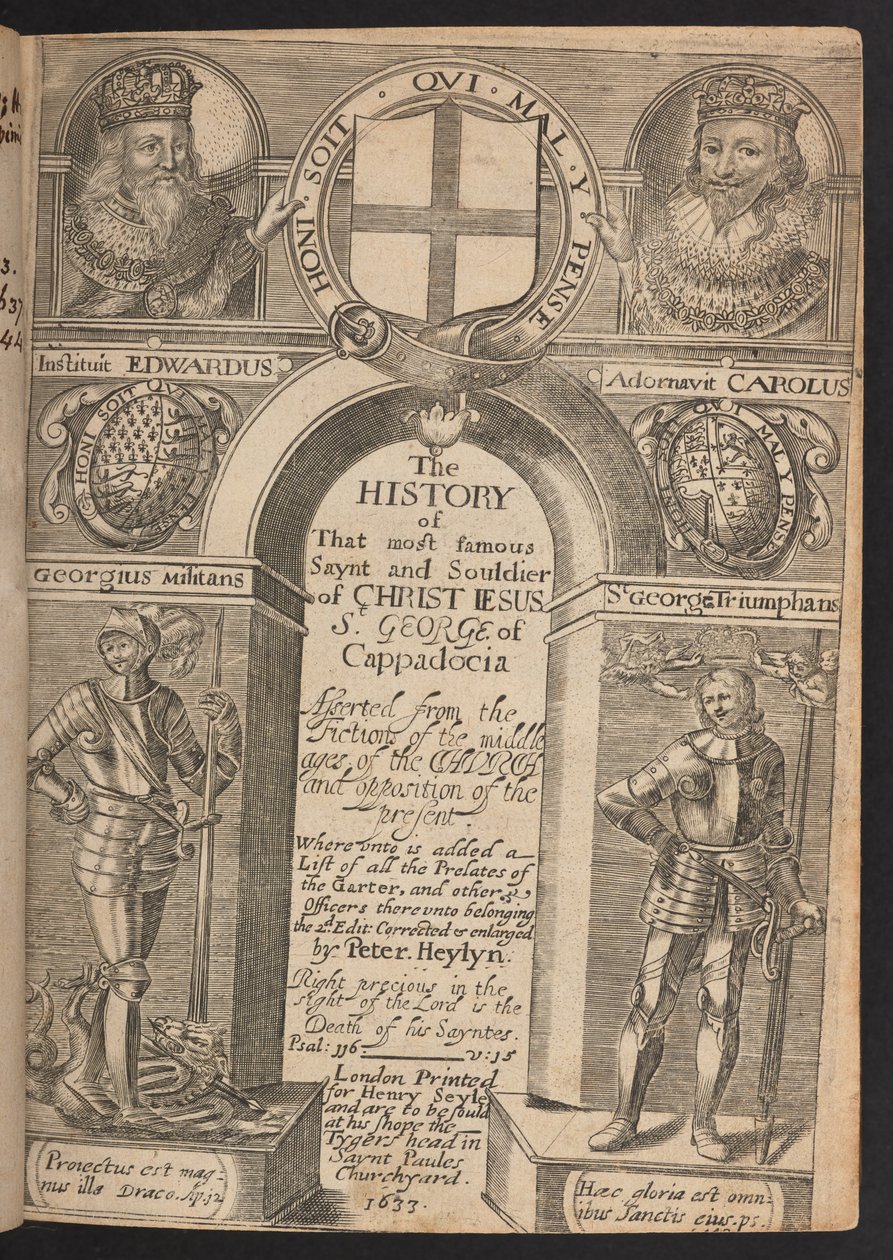 HONI · SOIT · QVI · MAL · Y · PENSE
Instituit EDWARDUS
Adornavit CAROLUS
HONI SOIT QVI MAL Y PENSE
HONI SOIT QVI MAL Y PENSE
Georgius Militans
St George Triumphans
The
HISTORY
of
That most famous
Saynt and Souldier
of CHRIST IESUS
St. GEORGE of
Cappadocia
Asserted from the
Fictions of the middle
ages of the CHVRCH
and opposition of the
present.
Where vnto is added a
List of all the Prelates of
the Garter, and other
Officers there vnto belonging
the 2d. Edit: Corrected & enlarged
by Peter. Heylyn.
Right precious in the
sight of the Lord is the
Death of his Sayntes.
Psal: 116: v: 15
London Printed
for Henry Seyle
and are to be sould
at his shope the
Tygers head in
Saynt Paules
Churchyard.
1633.
Proiectus est mag-
nus ille Draco. Ap. 12
Hæc gloria est omn:
ibus Sanctis eius. ps.
3.
637
44